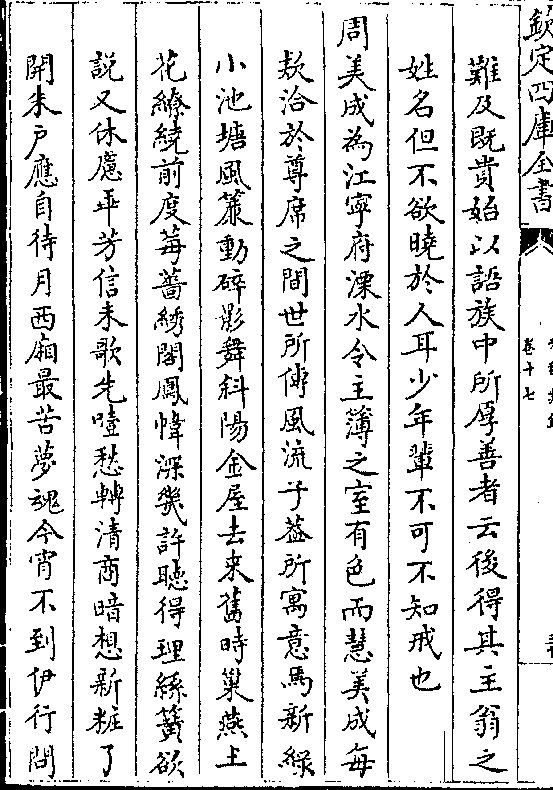 欽定四庫全書
卷十七
難及既貴始以語族中所厚善者云後得其主翁之
姓名但不欲曉於人耳少年輩不可不知戒也
周美成為江寧府溧水令主簿之室有色而慧美成每
欵洽於尊席之間世所傳風流子葢所寓意焉新綠
小池塘風簾動碎影舞斜陽金屋去來舊時巢燕土
花繚繞前度莓蔷綉閣鳳幃深幾許聽得理絲簧欲
說又休慮乖芳信未歌先噎愁轉清商暗想新粧了
開朱戶應自待月西廂最苦夢魂今宵不到伊行問